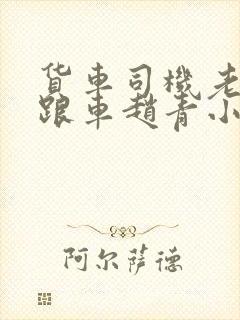 货车司機老
跟車趙青小
阿尔萨德